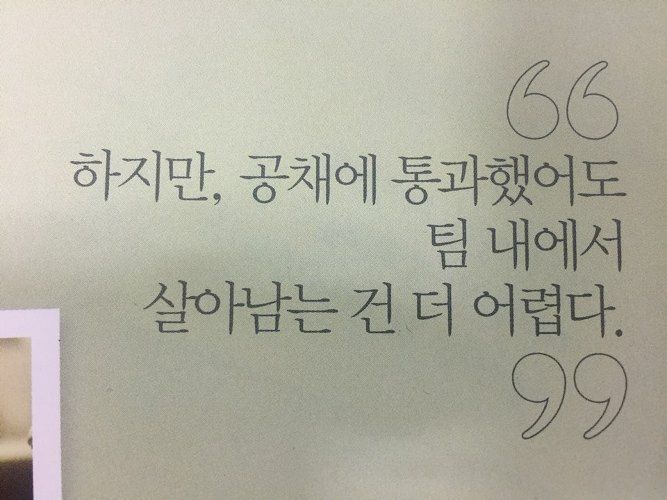 “
하지만, 공채에 통과했어도
팀 내에서
살아남는 건 더 어렵다.
”